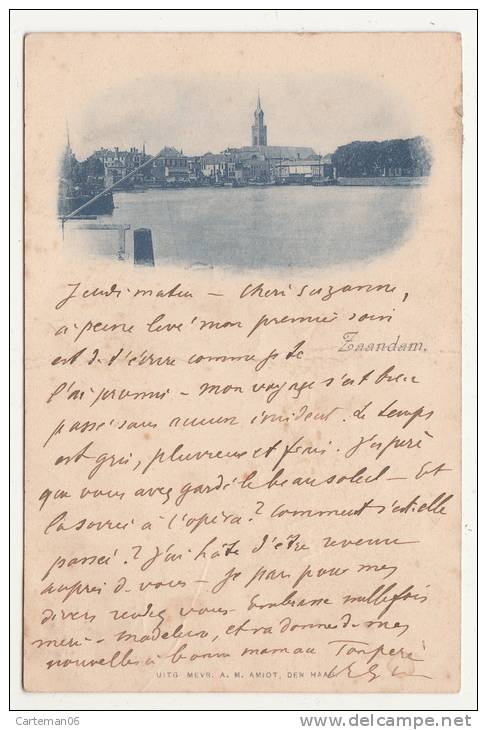 Jeudi matin – Chéri Suzanne,
à peine levé mon premier soin
est de t'écrire comme je te
Zaandam.
l'ai promis – mon voyage s'est bien
passé sans aucun incident. Le temps
est gris, pluvieux et froid. J'espère
que vous avez gardé le beau soleil – Et
la soirée à l'opéra? Comment s'est-elle
passée? J'ai hâte d'être revenu
auprès de vous – Je pars pour mes
divers rendez vous. Embrasse mille fois
et va donner de mes
nouvelles à bonne maman Ton père
UITG MEVR. A. M. AMIOT, DEN HAAG
Carteman06
http://www.delcampe.net